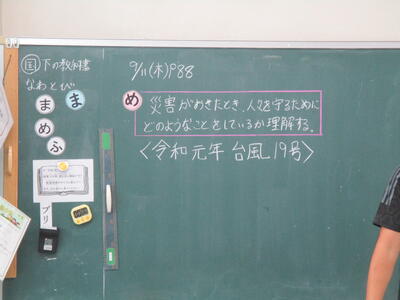 国 下の教科書
なわとび
ま
ま
め
ふ
プリ
9/11(木)P88
め 災害がおきたとき、人々を守るために
どのようなことをしているか理解する。
〈令和元年 台風19号〉